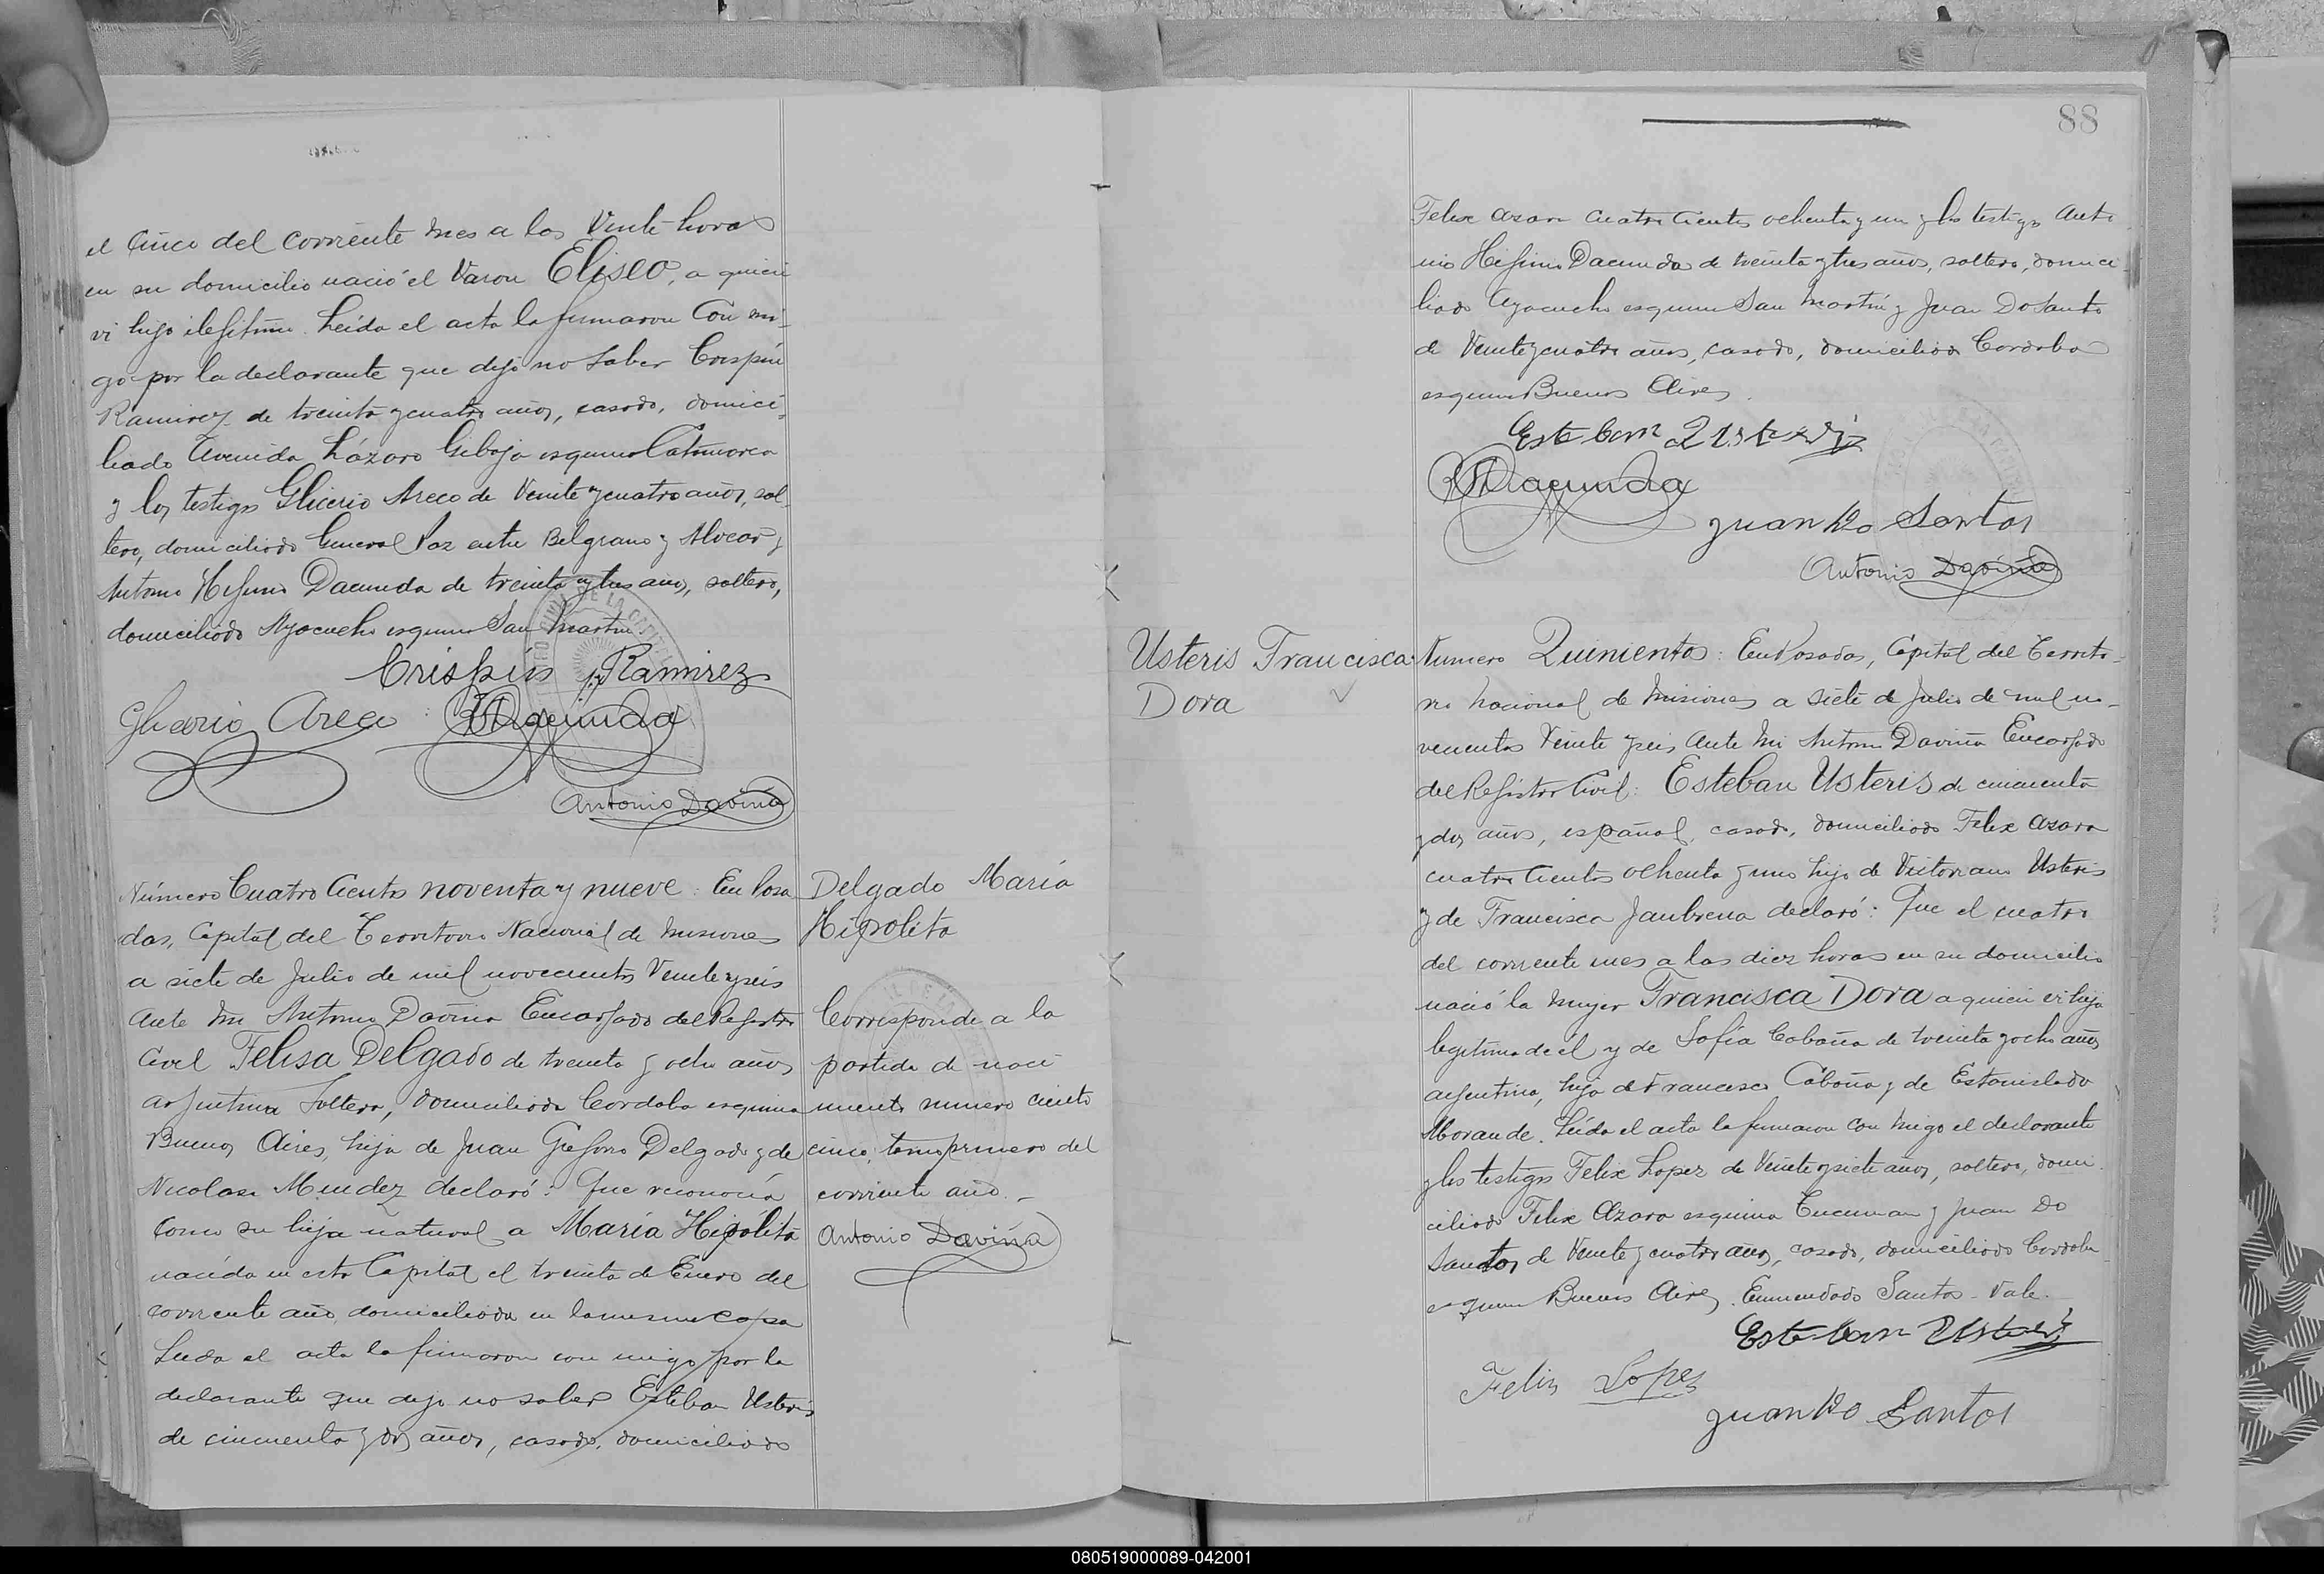 el cinco del corriente mes a las Veinte horas
en su domicilio nació el Varon Eliseo, a quien
vi hijo ilegitimo. Leida el acta la firmaron Con mi-
go por la declarante que dijo no saber Crispin
Ramirez de treinta y cuatro años, casado, domici-
liado Avenida Lázaro Gibaja esquina Catamarca
y los testigos Glicerio Areco de Veinte y cuatro años, sol-
tero, domiciliado General Paz entre Belgrano y Alvear y
Antonio Higinio Dacunda de treinta y tres años, soltero,
domiciliado Ayacucho esquina San Martin.
Crispin Ramirez
Glicerio Areco
HDacunda
Antonio Daviña
Número Cuatro Cientos noventa y nueve: En Posa
das, Capital del Territorio Nacional de Misiones
a siete de Julio de mil novecientos Veinte y seis
Ante mi Antonio Daviña Encargado del Registro
Civil Felisa Delgado de treinta y ocho años
argentina Soltera, domiciliada Cordoba esquina
Buenos Aires, hija de Juan Gregorio Delgado y de
Nicolasa Mendez declaró: Que reconocía
como su hija natural a María Hipólita
nacida en esta Capital el treinta de Enero del
corriente año, domiciliada en la misma casa
Leida el acta la firmaron con migo por la
declarante que dijo no saber Esteban Usteris
de cincuenta y dos años, casado, domiciliado
Delgado María
Hipolita
Corresponde a la
partida de naci
miento numero ciento
cinco, tomo primero del
corriente año.-
Antonio Daviña
88
Felix Azara cuatro cientos ochenta y un y los testigos Anto
nio Higinio Dacunda de treinta y tres años, soltero, domici-
liado Ayacucho esquina San Martin y Juan Do Santo
de Veinte y cuatro años, casado, domiciliado Cordoba
esquina Buenos Aires.
Esteban Usteris
HDacunda
Juan Do Santos
Antonio Daviña
Usteris Francisca
Dora
Numero Quinientos: En Posadas, Capital del Territo-
rio Nacional de Misiones a siete de Julio de mil no-
vecientos Veinte y seis Ante Mi Antonio Daviña Encargado
del Registro Civil: Esteban Usteris de cincuenta
y dos años, español, casado, domiciliado Felix Azara
cuatro cientos ochenta y uno hijo de Victoriano Usteris
y de Francisca Jaubrena declaró: Que el cuatro
del corriente mes a las diez horas en su domicilio
nació la Mujer Francisca Dora a quien vi hija
legitima de el y de Sofía Cabaña de treinta y ocho años
argentina, hija de Francisco Cabaña y de Estanislada
Morande. Leida el acta la firmaron con migo el declarante
y los testigos Felix Lopez de Veinte y siete años, soltero, domi
ciliado Felix Azara esquina Tucuman y Juan Do
Santos de Veinte y cuatro años, casado, domiciliado Cordoba
esquina Buenos Aires. Enmendado Santos - Vale.
Esteban Usteris
Felix Lopez
Juan Do Santos
080519000089-042001